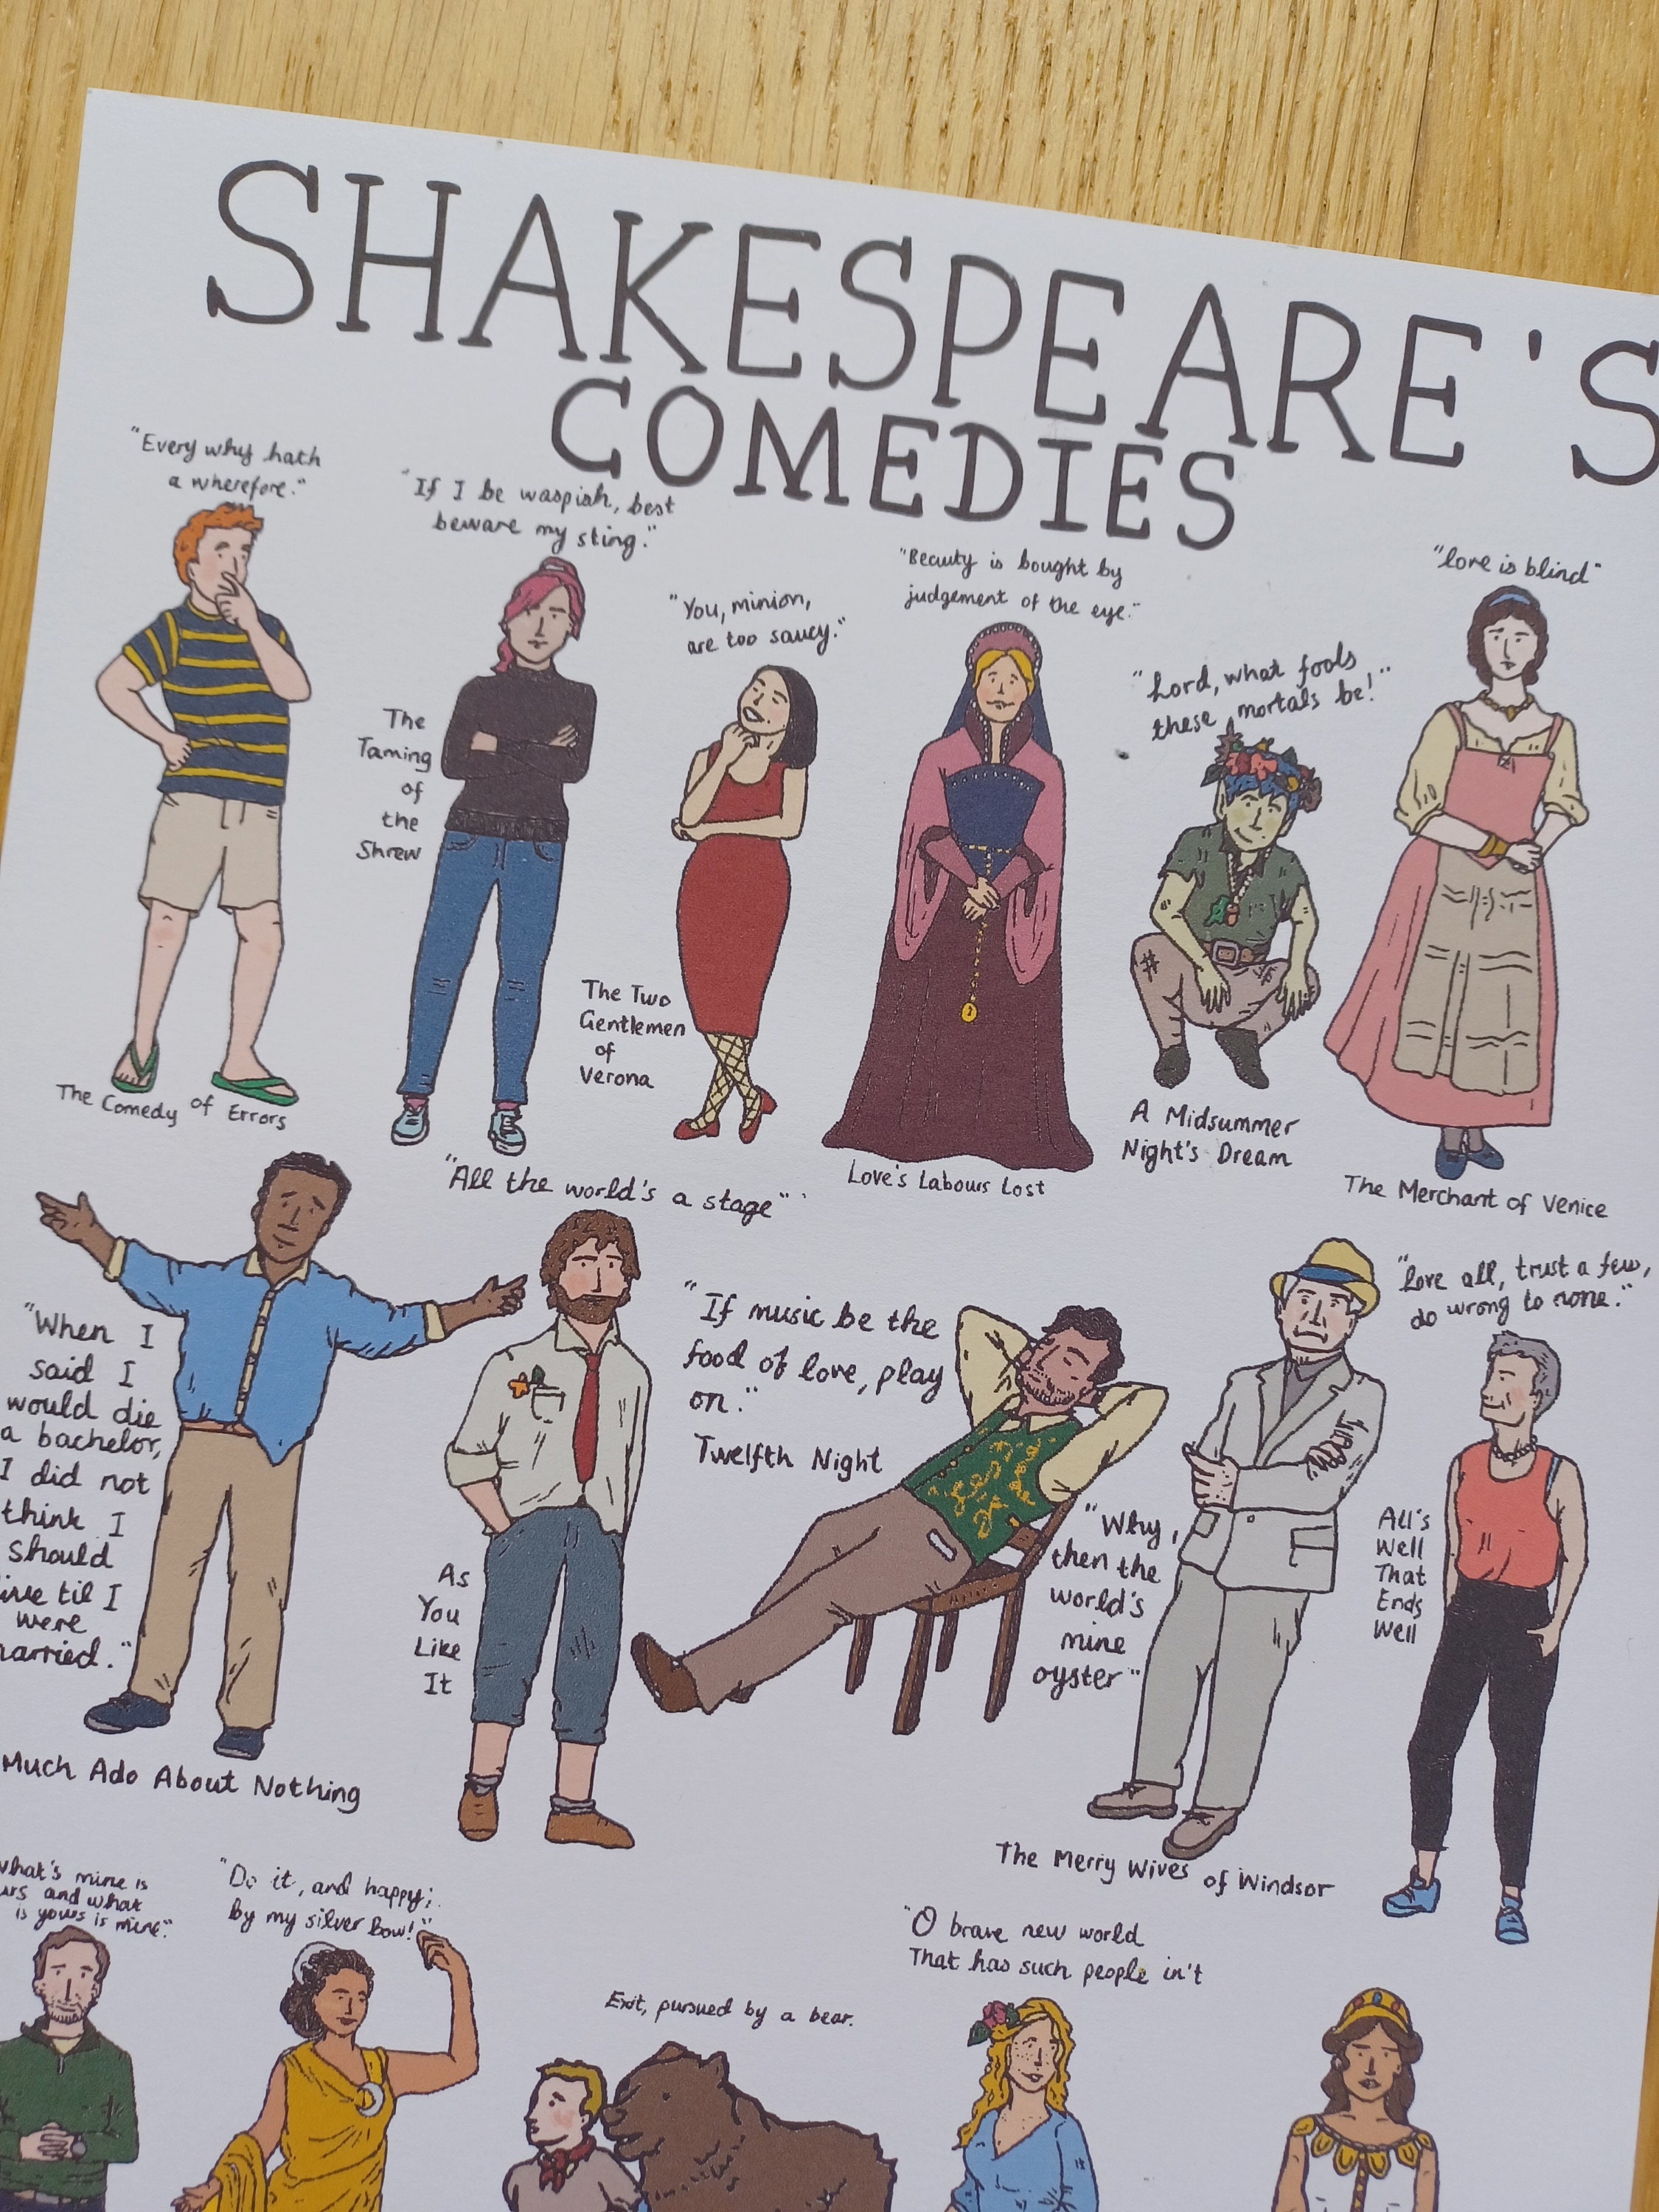 SHAKESPEARE'S
COMEDIES
"Every why hath
a wherefore."
The Comedy of Errors
"If I be waspish, best
beware my sting."
The
Taming
of
the
Shrew
"You, minion,
are too saucy."
The Two
Gentlemen
of
Verona
"Beauty is bought by
judgement of the eye."
Love's Labours Lost
"Lord, what fools
these mortals be!"
A Midsummer
Night's Dream
"love is blind"
The Merchant of Venice
"When I
said I
would die
a bachelor,
I did not
think I
should
live til I
were
married."
Much Ado About Nothing
"All the world's a stage"
As
You
Like
It
"If music be the
food of love, play
on."
Twelfth Night
"Why,
then the
world's
mine
oyster"
The Merry Wives of Windsor
"Love all, trust a few,
do wrong to none."
All's
Well
That
Ends
Well
what's mine is
and what
is yours is mine."
"Do it, and happy;
by my silver bow!"
Exit, pursued by a bear.
"O brave new world
That has such people in't